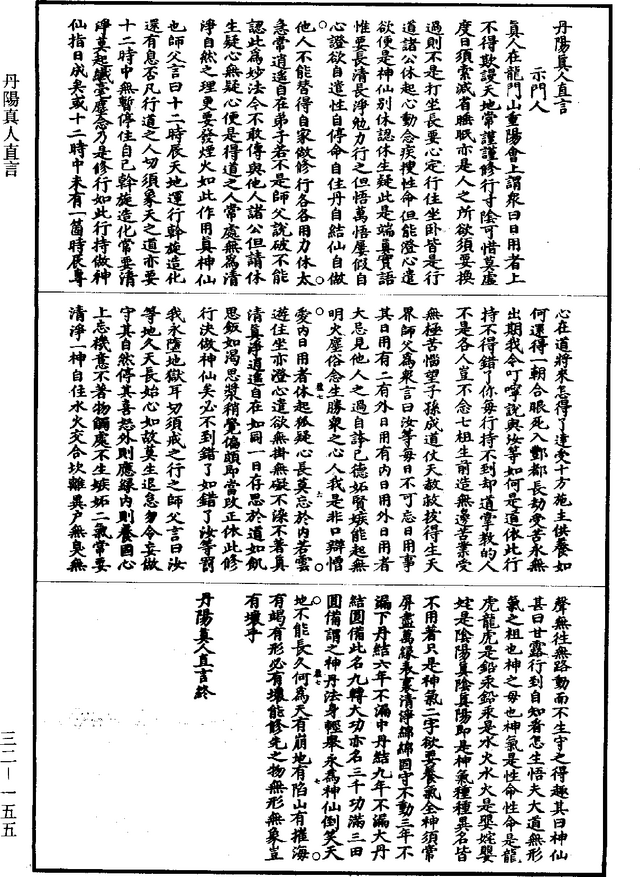 丹陽真人直言
示門人
真人在龍門山重陽會上謂衆曰日用者上
不得欺謾天地常謹謹修行寸陰可惜莫虛
度日須索減省睡眠亦是人之所欲須要換
過則不是打坐長要心定行住坐臥皆是行
道諸公休起心動念疾搜性命但能澄心遣
欲便是神仙別休認休生疑此是端真實語
惟要長清長淨勉力行之但悟萬悟屢假自
心證欲自遣性自停命自住丹自結仙自做
他人不能替得自家做修行各各用力休太
急常逍遙自在弟子若不是師父說破不能
認此為妙法今不敢傳與他人諸公但請休
生疑心無疑心便是得道之人常處無為清
淨自然之理更要發煙火如此作用真神仙
也師父言曰十二時辰天地運行斡旋造化
還有息否凡行道之人切須象天之道亦要
十二時中無暫停住自己斡旋造化常要清
淨莫起纖毫塵念乃是修行如此行持做神
仙指日成矣或十二時中未有一箇時辰專
心在道將來怎得了達受十方施主供養如
何還得一朝合眼死入酆都長劫受苦永無
出期我今叮嚀說與汝等如何是道依此行
持不得錯了你每行持不到却道掌教的人
不是各人豈不念七祖生前造無邊苦業受
無極苦惱望子孫成道仗天赦敕拔得生天
界師父為衆言曰汝等每日不可忘日用事
其日用有二有外日用有內日用外日用者
大忌見他人之過自誇已德妬賢嫉能起無
明火塵俗念生勝衆之心人我是非口辯憎
愛內日用者休起狐疑心長莫忘於內若雲
遊住坐亦澄心遣欲無掛無礙不染不著真
清真淨逍遙自在如同一日存思於道如飢
思飯如渴思漿稍覺偏頗即當改正依此修
行決做神仙矣必不到錯了如錯了汝等罰
我永墮地獄耳切須戒之行之師父言曰汝
等地久天長始心如故莫生退怠勿令妄做
守其自然停其喜怒外則應緣內則養固心
上忘機意不著物觸處不生嫉妬二氣常要
清淨一神自住水火交合坎離異戶無臭無
聲無往無路動而不生守之得趣其曰神仙
甚曰甘露行到自知者怎生悟夫大道無形
氣之祖也神之母也神氣是性命性命是龍
虎龍虎是鉛汞鉛汞是水火水火是嬰姹嬰
姹是陰陽真陰真陽即是神氣種種異名皆
不用著只是神氣二字欲要養氣全神須常
屏盡萬緣表裏清淨綿綿固守不動三年不
漏下丹結六年不漏中丹結九年不漏大丹
結圓備此名九轉大功亦名三千功滿三田
圓備謂之神丹法身輕舉永為神仙倒笑天
地不能長久何為天有崩地有陷山有摧海
有竭有形必有壞能修先之物無形無象豈
有壞乎
丹陽真人直言終
丹陽真人直言
三二—一五五